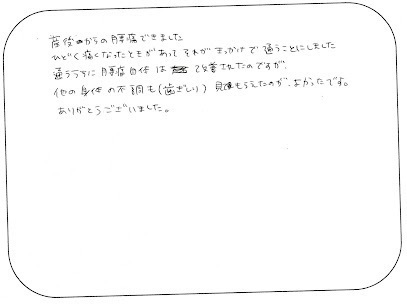 産後からの腰痛できました
ひどく痛くなったときがあって それが きっかけで通うことにしました
通ううちに 腰痛自体は て改善されたのですが、
他の身体の不調も(歯ぎしり) 見てもらえたのが、よかったです。
ありがとうございました。